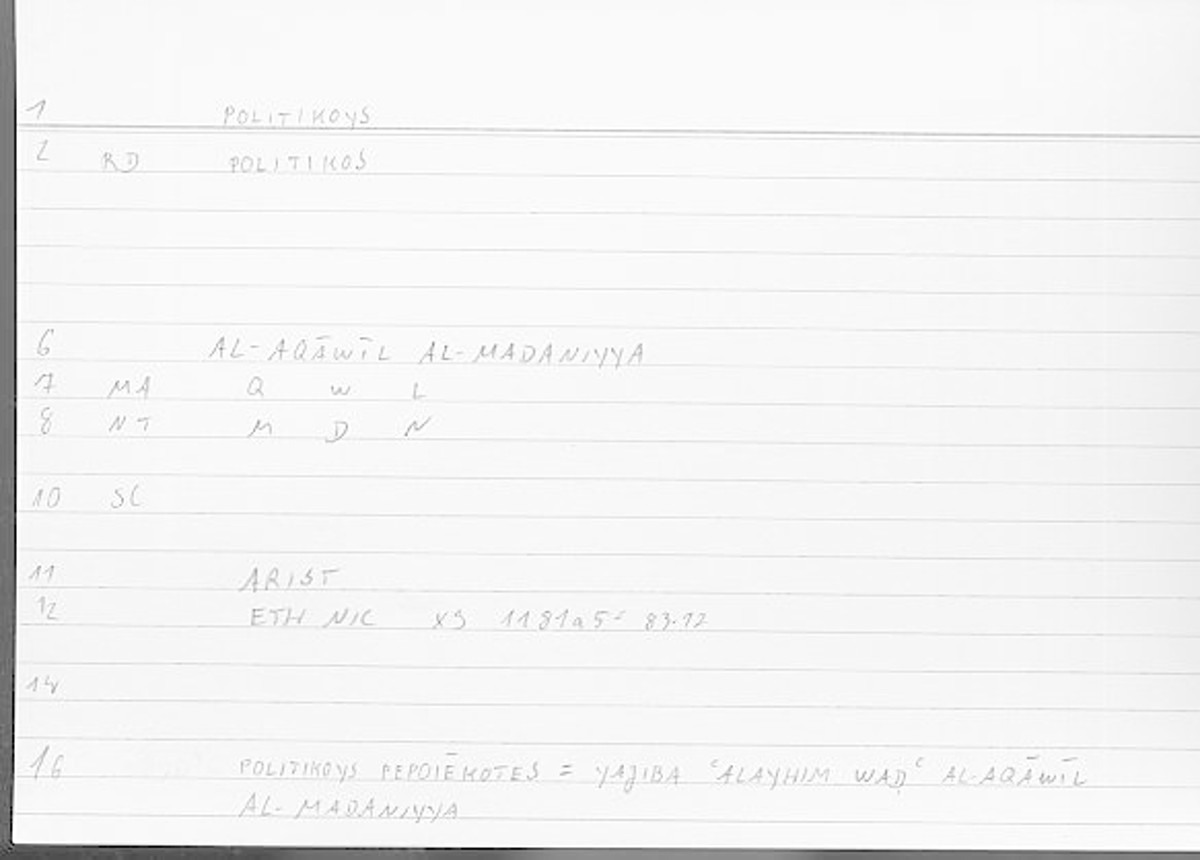 1 POLITIKOYS
2 RD POLITIKOS
6 AL-AQĀWĪL AL-MADANIYYA
7 MA Q W L
8 NT M D N
10 SC
11 ARIST
12 ETH NIC X9 1181a5= 83.12
14
16 POLITIKOYS PEPOIĒKOTES = YAJIBA ʿALAYHIM WAḌʿ AL-AQĀWĪL
AL-MADANIYYA